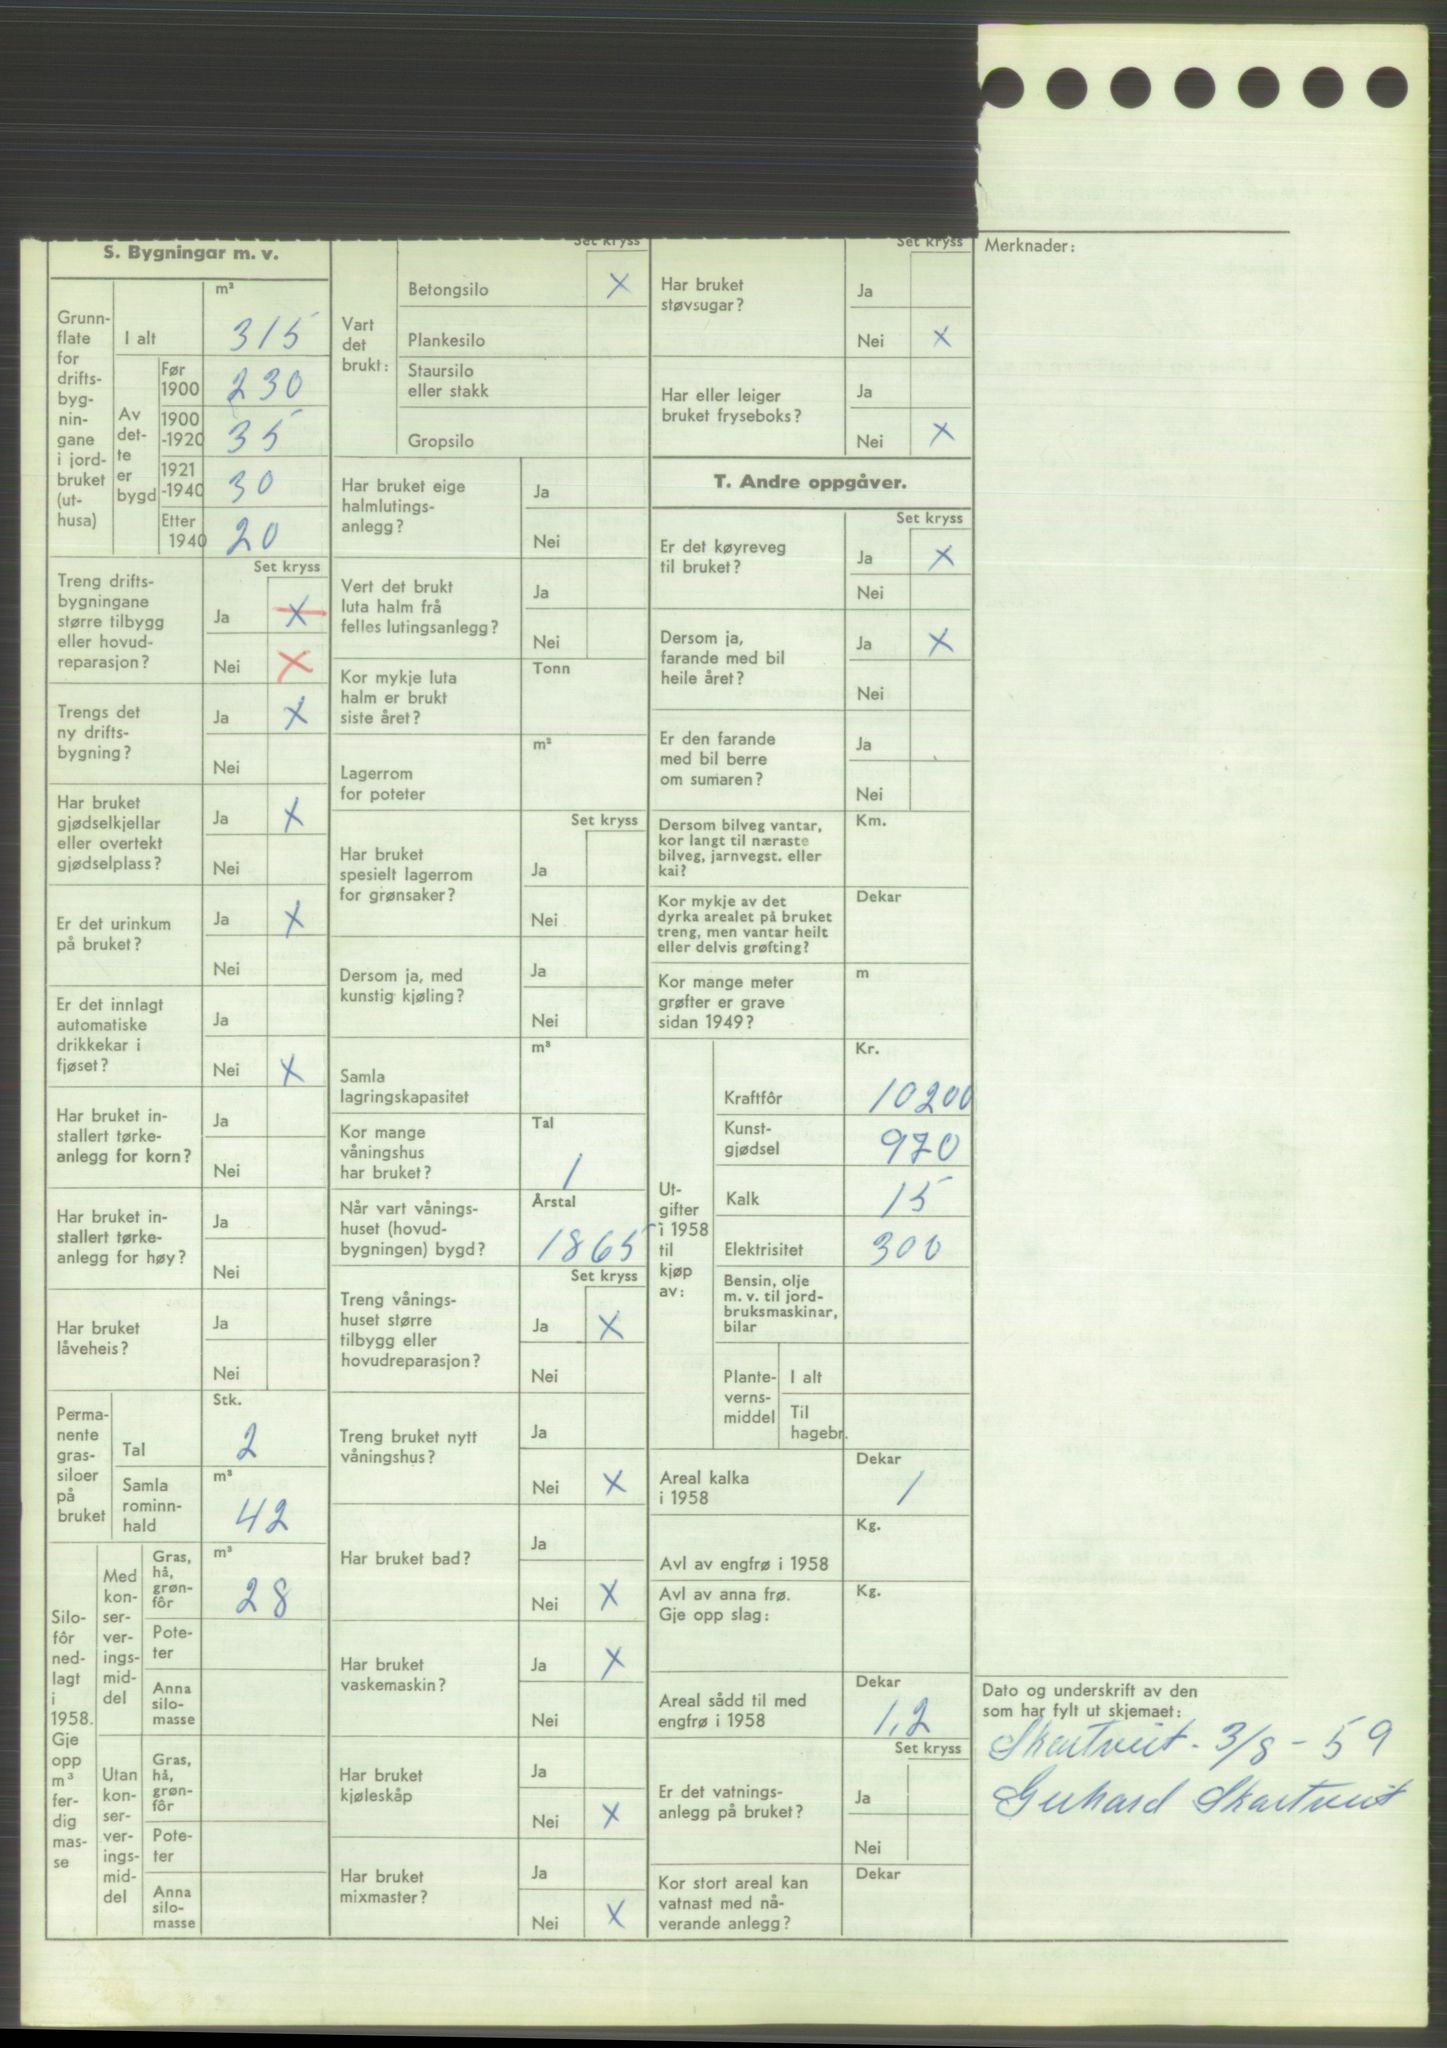 S. Bygningar m. v.
Grunn-
flate
for
drifts-
byg-
nin-
gane
i jord-
bruket
(ut-
husa)
m²
I alt 315
Av
det-
te
er
bygd
Før
1900 230
1900
-1920 35
1921
-1940 30
Etter
1940 20
Set kryss
Treng drifts-
bygningane
større tilbygg
eller hovud-
reparasjon?
Ja X
Nei X
Trengs det
ny drifts-
bygning?
Ja X
Nei
Har bruket
gjødselkjellar
eller overtekt
gjødselplass?
Ja X
Nei
Er det urinkum
på bruket?
Ja X
Nei
Er det innlagt
automatiske
drikkekar i
fjøset?
Ja
Nei X
Har bruket in-
stallert tørke-
anlegg for korn?
Ja
Nei
Har bruket in-
stallert tørke-
anlegg for høy?
Ja
Nei
Har bruket
låveheis?
Ja
Nei
Perma-
nente
gras-
siloer
på
bruket
Stk.
Tal 2
m³
Samla
rominn-
hald 42
Silo-
fôr
ned-
lagt
i
1958.
Gje
opp
m³
fer-
dig
mas-
se
Med
kon-
ser-
ver-
ings-
mid-
del
m³
Gras,
hå,
grøn-
fôr 28
Pote-
ter
Anna
silo-
masse
Utan
kon-
ser-
ver-
ings-
mid-
del
Gras,
hå,
grøn-
fôr
Pote-
ter
Anna
silo-
masse
Set kryss
Vart
det
brukt:
Betongsilo X
Plankesilo
Staursilo
eller stakk
Gropsilo
Har bruket eige
halmlutings-
anlegg?
Ja
Nei
Vert det brukt
luta halm frå
felles lutingsanlegg?
Ja
Nei
Kor mykje luta
halm er brukt
siste året?
Tonn
Lagerrom
for poteter
m²
Set kryss
Har bruket
spesielt lagerrom
for grønsaker?
Ja
Nei
Dersom ja, med
kunstig kjøling?
Ja
Nei
Samla
lagringskapasitet
m³
Kor mange
våningshus
har bruket?
Tal
1
Når vart vånings-
huset (hovud-
bygningen) bygd?
Årstal
1865
Set kryss
Treng vånings-
huset større
tilbygg eller
hovudreparasjon?
Ja X
Nei
Treng bruket nytt
våningshus?
Ja
Nei X
Har bruket bad?
Ja
Nei X
Har bruket
vaskemaskin?
Ja X
Nei
Har bruket
kjøleskåp
Ja
Nei X
Har bruket
mixmaster?
Ja
Nei X
Set kryss
Har bruket
støvsugar?
Ja
Nei X
Har eller leiger
bruket fryseboks?
Ja
Nei X
T. Andre oppgåver.
Set kryss
Er det køyreveg
til bruket?
Ja X
Nei
Dersom ja,
farande med bil
heile året?
Ja X
Nei
Er den farande
med bil berre
om sumaren?
Ja
Nei
Dersom bilveg vantar,
kor langt til næraste
bilveg, jarnvegst. eller
kai?
Km.
Kor mykje av det
dyrka arealet på bruket
treng, men vantar heilt
eller delvis grøfting?
Dekar
Kor mange meter
grøfter er grave
sidan 1949?
m
Ut-
gifter
i 1958
til
kjøp
av:
Kr.
Kraftfôr 10200
Kunst-
gjødsel 970
Kalk 15
Elektrisitet 300
Bensin, olje
m. v. til jord-
bruksmaskinar,
bilar
Plante-
verns-
middel
I alt
Til
hagebr.
Areal kalka
i 1958
Dekar
1
Avl av engfrø i 1958
Kg.
Avl av anna frø.
Gje opp slag:
Kg.
Areal sådd til med
engfrø i 1958
Dekar
1,2
Set kryss
Er det vatnings-
anlegg på bruket?
Ja
Nei
Kor stort areal kan
vatnast med nå-
verande anlegg?
Dekar
Merknader:
Dato og underskrift av den
som har fylt ut skjemaet:
Skartveit - 3/8 - 59
Gerhard Skartveit